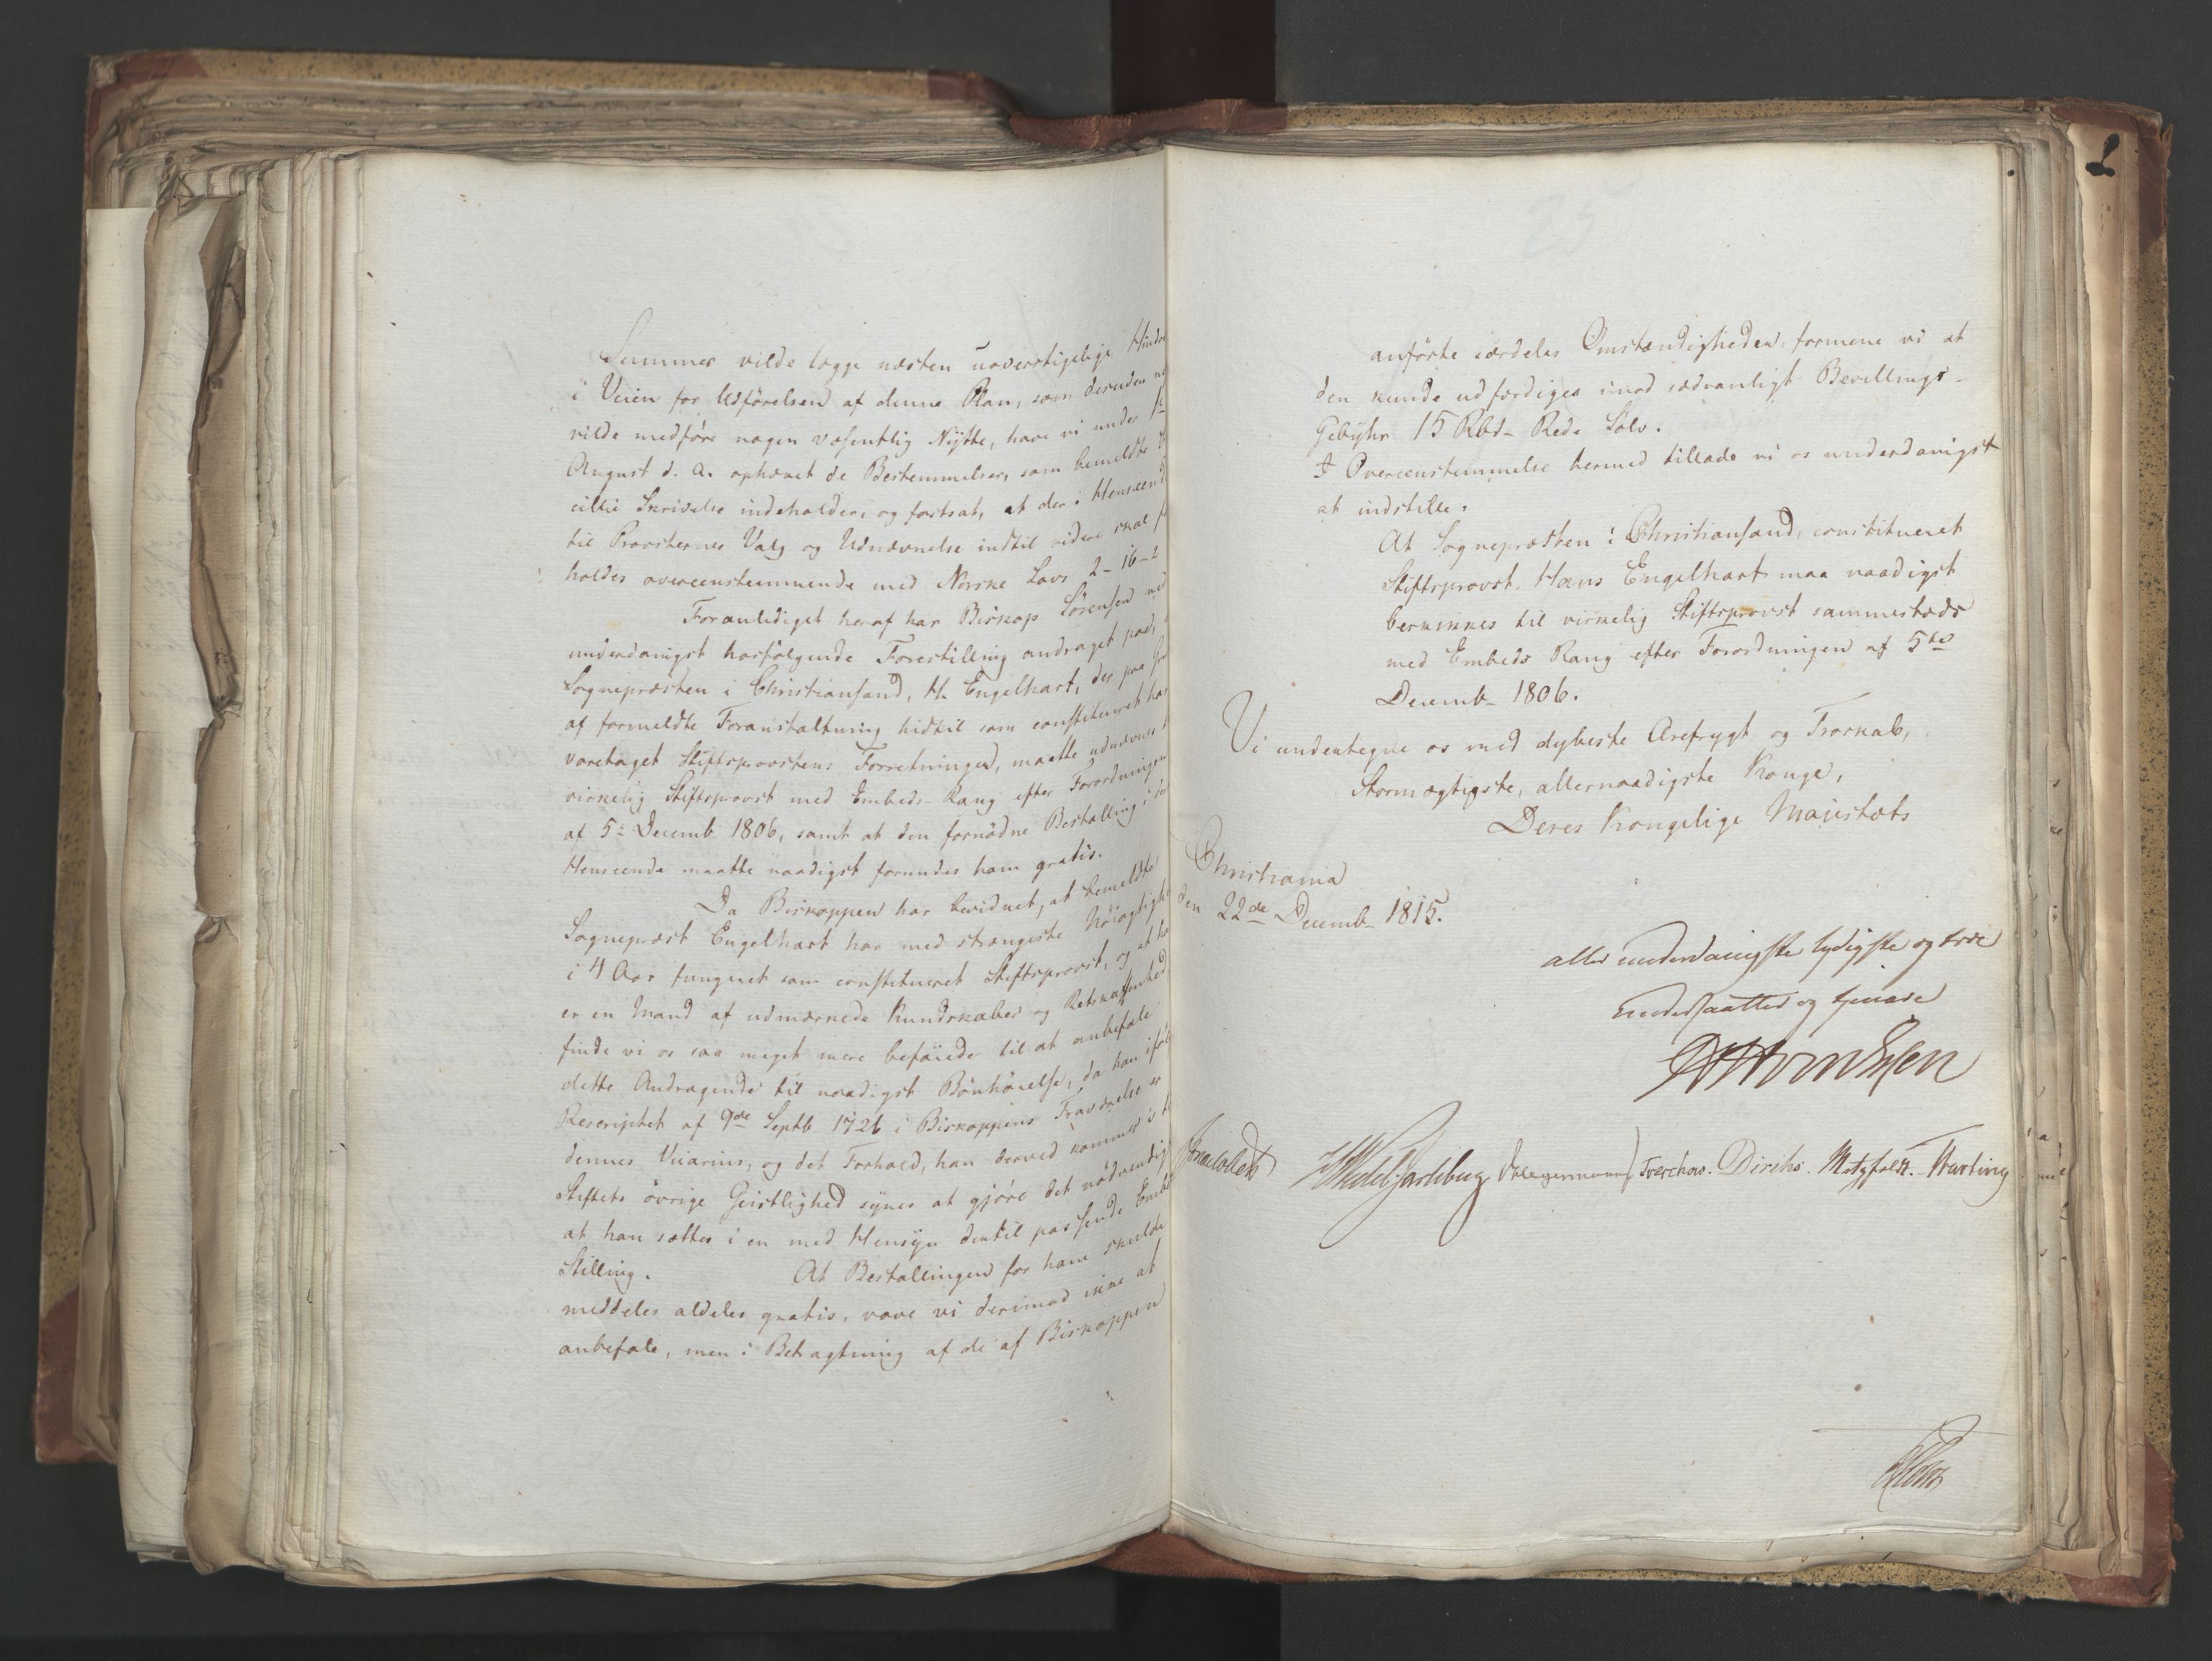 Summer vilde lægge næsten uoverstigelige Hindr
i Veien for Udførelsen af denne Plan, som desuden
vilde medføre nogen væsentlig Nytte, have vi under 1ste
August d. A. ophævet de Bestemmelser, som bemeldte
cellie Skrivelse indeholder, og fastsat, at der i Henseende
til Provsternes Valg og Udnævnelse indtil videre skal
holdes overeenstemmende med Norske Lovs 2-16-2
Foranlediget heraf har Biskop Sörensen ved
underdanigst hosfølgende Forestilling andraget paa,
Sognepræsten i Christiansand, H. Engelhart, der paa
af formeldte Foranstaltning hidtil som constitueret har
varetaget Stiftsprovstens Forretninger, maatte udnævnes
virkelig Stiftsprovst med Embeds-Rang efter Forordningen
af 5te Decemb 1806, samt at den fornödne Bestalling i
Henseende maatte naadigst forundes ham gratis.
Da Biskoppen har bevidnet, at bemeldte
Sognepræst Engelhart har med strængeste Nöiagtigh
i 4 Aar fungeret som constitueret Stiftsprovst, og at ha
er en Mand af udmærkede Kundskaber og Retskaffenhed
finde vi os saa meget mere beföiede til at anbefale
dette Andragende til naadigst Bönhörelse, da han ifölge
Rescriptet af 9de Septb 1726 i Biskoppens Fraværelse er
dennes Vicarius, og det Forhold, han derved kommer i til
Stiftets övrige Geistlighed synes at gjöre det nödvendig
at han sættes i en med Hensyn dertil passende Embeds
Stilling. At Bestallingen for ham skulde
meddeles aldeles gratis, vove vi derimod ikke at
anbefale, men i Betragtning af de af Biskoppen
anförte særdeles Omstændigheder formene vi at
den kunde udfærdiges imod sædvanligt Bevillings-
Gebyhr 15 Rbd- Rede Sölv.
I Overeenstemmelse hermed tillade vi os underdanigst
at indstille:
At Sognepræsten i Christiansand, constitueret
Stiftsprovst, Hans Engelhart maa naadigst
beskikkes til virkelig Stiftsprovst sammesteds
med Embeds Rang efter Forordningen af 5te
Decemb- 1806.
Vi undertegne os med dybeste Ærefrygt og Troskab,
Stormægtigste, allernaadigste Konge,
Deres Kongelige Majestæts
Christiania
den 22de Decemb- 1815.
aller underdanigste lydigste og troe
Undersaatter og tjenere
Sommerhielm Wedel Jarlsberg Treschow. Diriks. Motzfeldt. Krarting